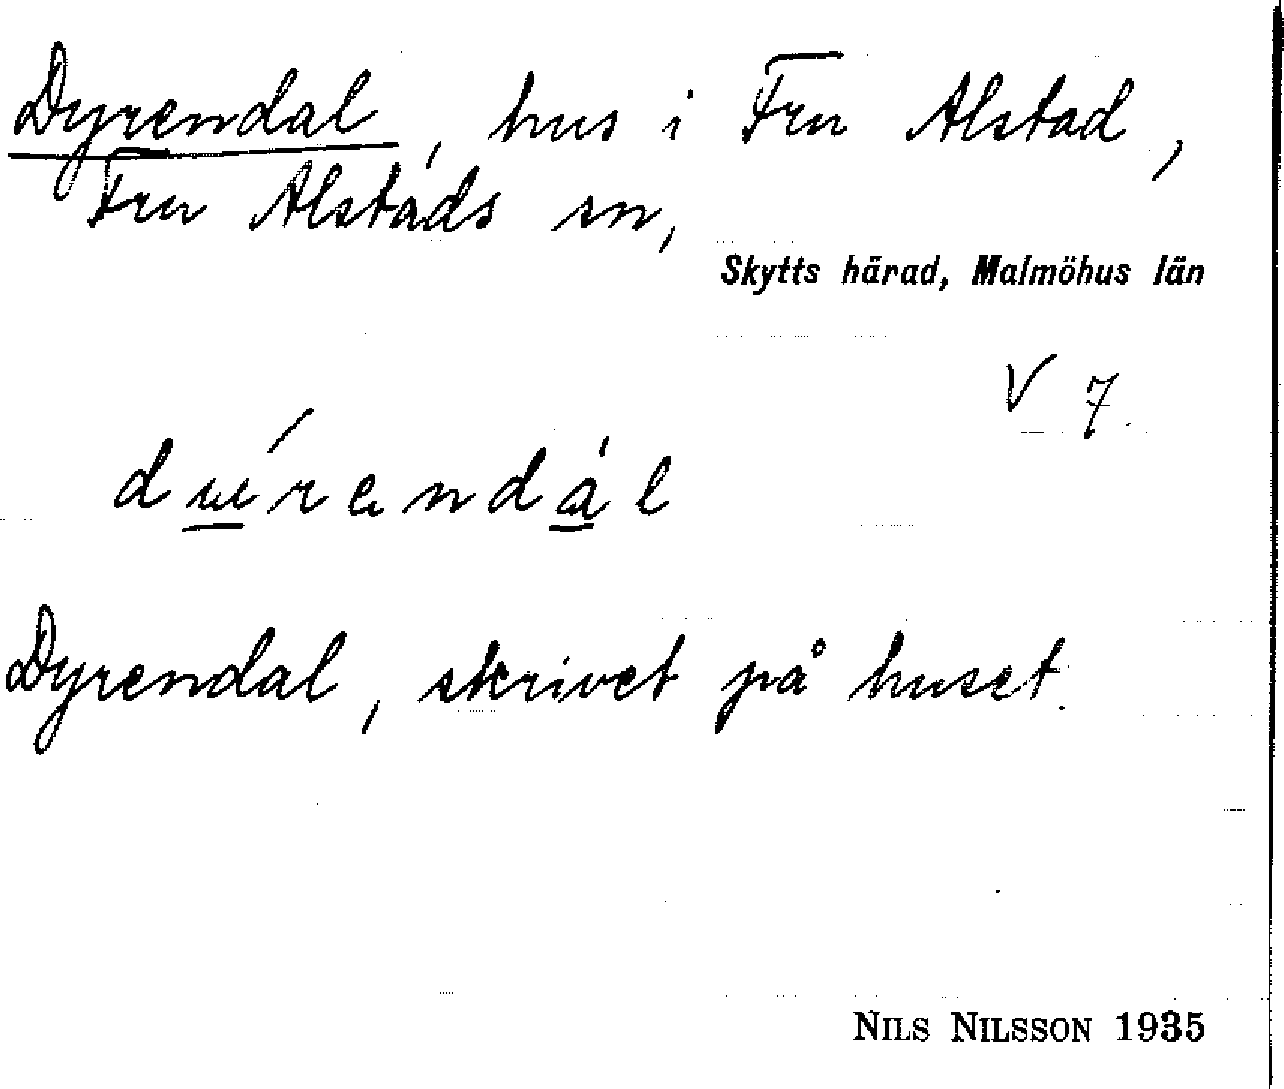 Dyrendal, hus i Fru Alstad,
Fru Alstads sn,
Skytts härad, Malmöhus län
V 7.
Dyrendal, skrivet på huset.
NILS NILSSON 1935